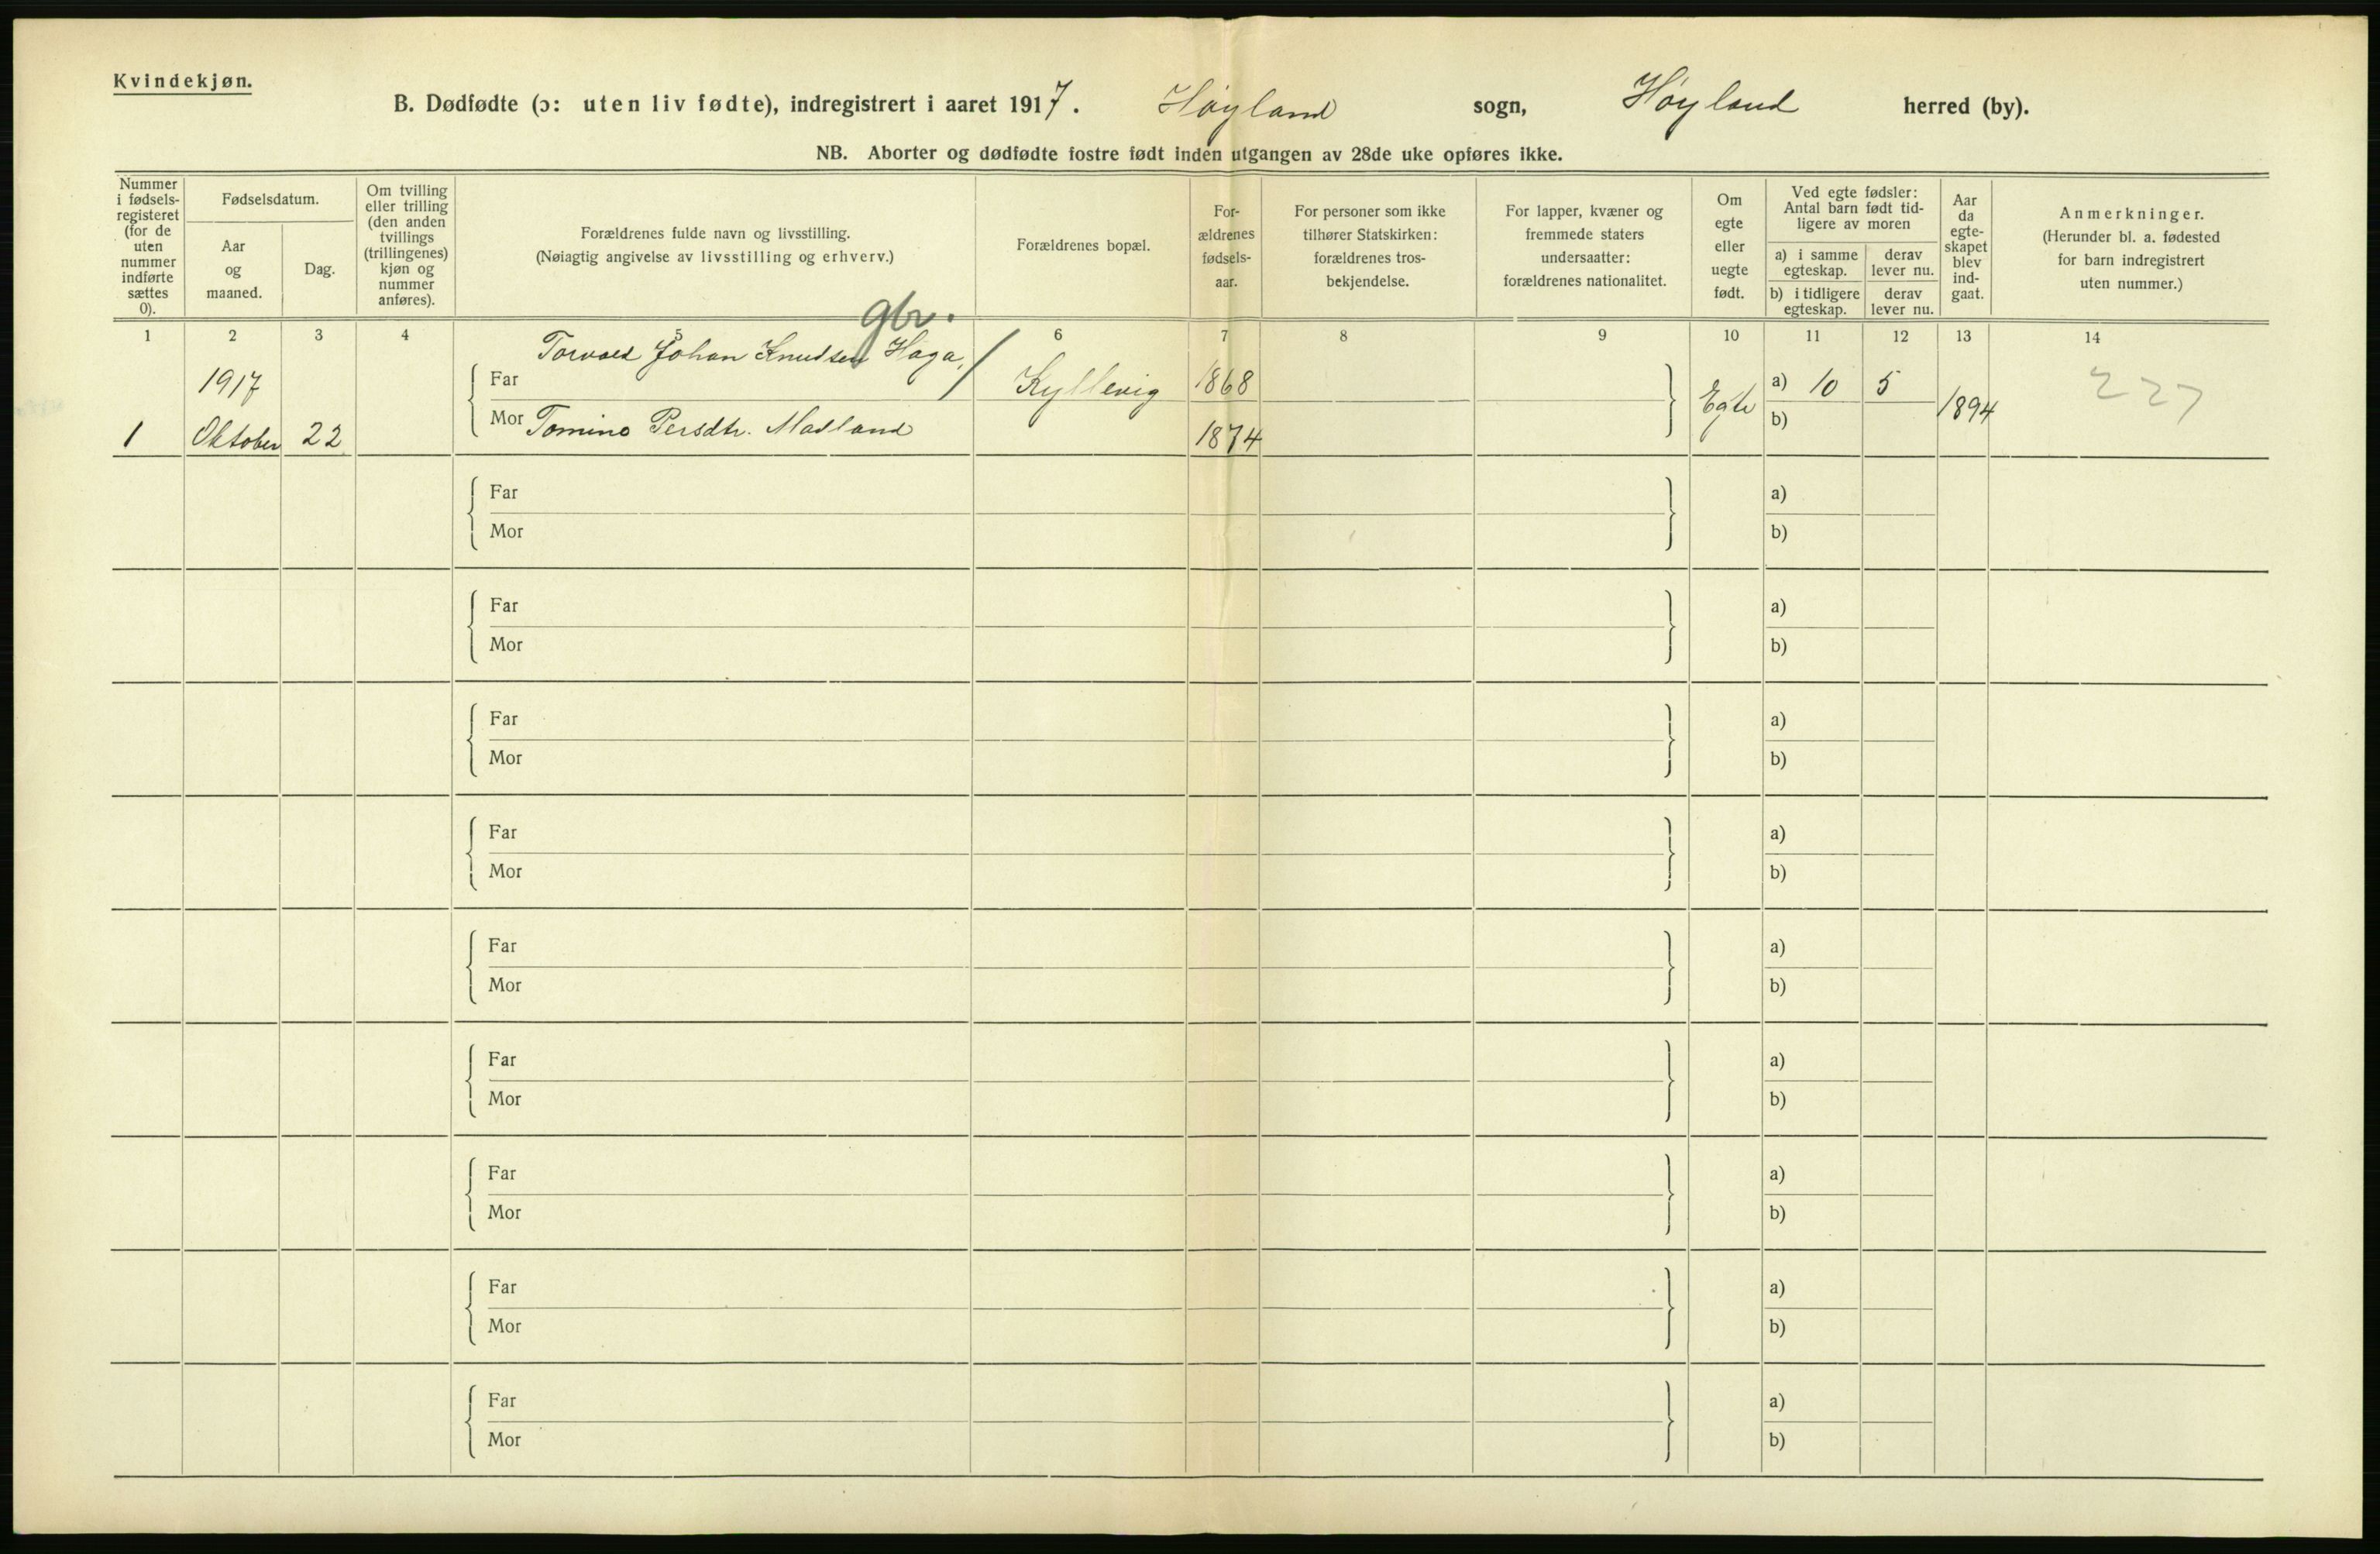 Kvindekjøn.
B. Dødfødte (ɔ: uten liv fødte), indregistrert i aaret 1917. Høyland sogn, Høyland herred (by).
NB. Aborter og dødfødte fostre født inden utgangen av 28de uke opføres ikke.
Nummer i fødsels-registeret (for de uten nummer indførte sættes 0).
Fødselsdatum.
Aar og maaned.
Dag.
Om tvilling eller trilling (den anden tvillings (trillingenes) kjøn og nummer anføres).
Forældrenes fulde navn og livsstilling.
(Nøiagtig angivelse av livsstilling og erhverv.)
Forældrenes bopæl.
For-ældrenes fødsels-aar.
For personer som ikke tilhører Statskirken: forældrenes tros-bekjendelse.
For lapper, kvæner og fremmede staters undersaatter: forældrenes nationalitet.
Om egte eller uegte født.
Ved egte fødsler: Antal barn født tid-ligere av moren
a) i samme egteskap.
derav lever nu.
b) i tidligere egteskap.
derav lever nu.
Aar da egte-skapet blev ind-gaat.
Anmerkninger.
(Herunder bl. a. fødested for barn indregistrert uten nummer.)
1 2 3 4 5 6 7 8 9 10 11 12 13 14
gbr.
Torvald Johan Knudsen Haga,
1917 Far Kyllevig 1868 a) 10 5 227
1 Oktober 22 Mor Tomine Persdtr. Madland 1874 Egte b) 1894
Far a)
Mor b)
Far a)
Mor b)
Far a)
Mor b)
Far a)
Mor b)
Far a)
Mor b)
Far a)
Mor b)
Far a)
Mor b)
Far a)
Mor b)
Far a)
Mor b)